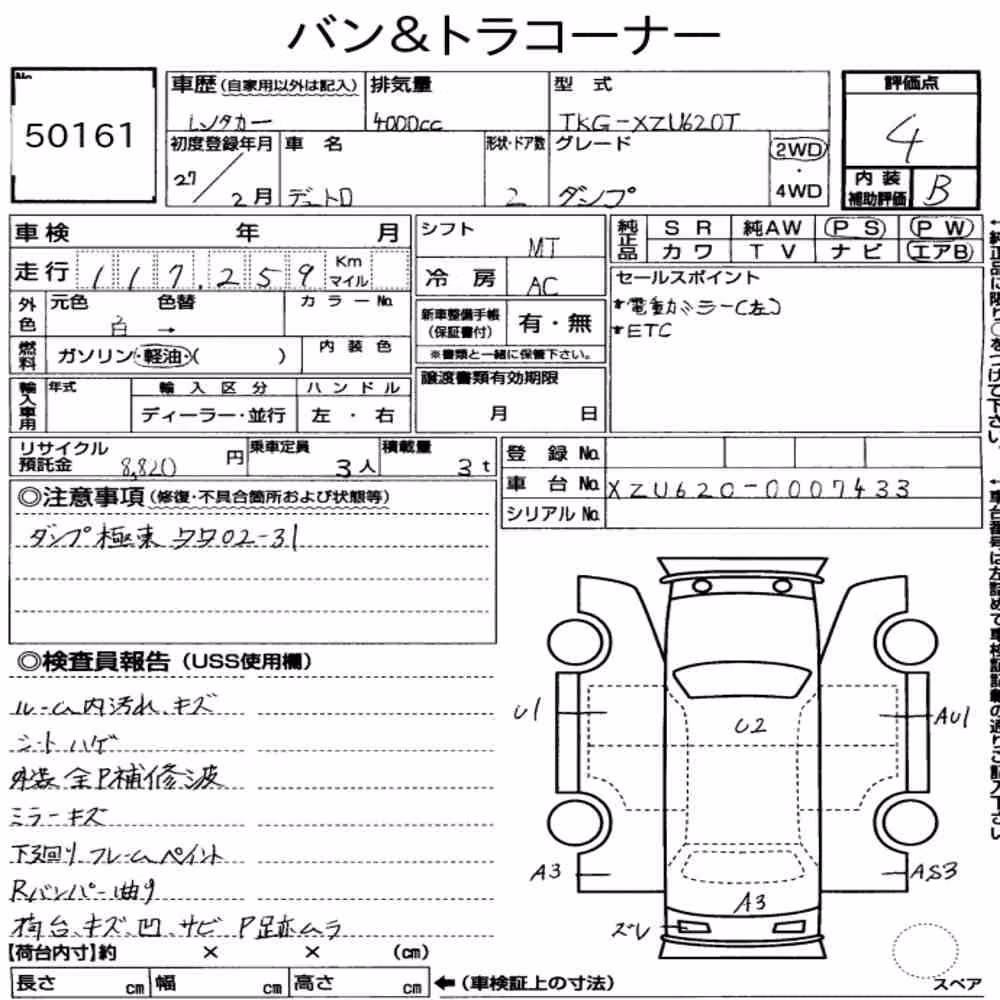 バン&トラコーナー
No.
50161
車歴(自家用以外は記入) 排気量 型 式 評価点
レンタカー 4000cc TKG-XZU620T 4
初度登録年月 車 名 形状・ドア数 グレード 2WD・4WD
27/2月 デュトロ 2 ダンプ
内装補助評価 B
車検 年 月
走行 117,259 Km マイル
外色 元色 色替 カラーNo.
白 →
燃料 ガソリン・軽油・( ) 内装色
輸入車用 年式 輸入区分 ハンドル
ディーラー・並行 左・右
シフト MT
冷 房 AC
新車整備手帳(保証書付) 有・無
※書類と一緒に保管下さい。
譲渡書類有効期限
月 日
純正品 SR 純AW PS PW
カワ TV ナビ エアB
セールスポイント
*電動ミラー(左)
*ETC
←純正品に限り○をつけて下さい。
リサイクル預託金 8,820円 乗車定員 3人 積載量 3t
登録No.
車台No. XZU620-0007433
シリアルNo.
←車台番号は左詰めで車検証記載の通りご記入下さい
◎注意事項(修復・不具合箇所および状態等)
ダンプ 極東 02-31
◎検査員報告(USS使用欄)
ルーム内汚れ、キズ
シートハゲ
外装 全P補修波
ミラーキズ
下廻り フレームペイント
Rバンパー曲り
荷台、キズ、凹、サビ P跡ムラ
U1 U2 AU1
A3 A3 AS3
ズレ
スペア
【荷台内寸】約 × × (cm)
長さ cm 幅 cm 高さ cm ←(車検証上の寸法)